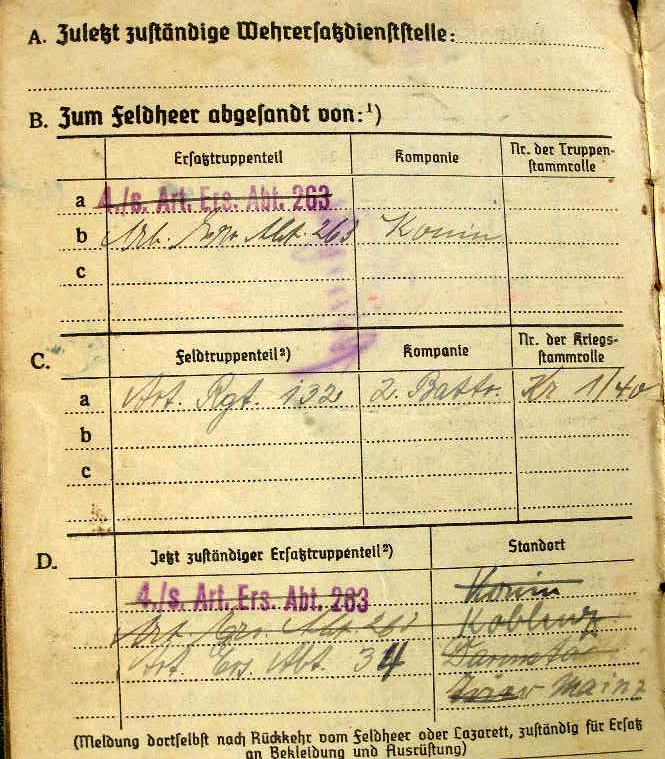 A. Zuletzt zuständige Wehrersatzdienststelle:
B. Zum Feldheer abgesandt von:¹)
Ersatztruppenteil Kompanie Nr. der Truppen-
stammrolle
a 4./s. Art. Ers. Abt. 263
b Abt. 263 Konin
c
C. Feldtruppenteil²) Kompanie Nr. der Kriegs-
stammrolle
a Art. Rgt. 132 2. Battr. Kr 1/40
b
c
D. Jetzt zuständiger Ersatztruppenteil²) Standort
4./s. Art. Ers. Abt. 263 Konin
Koblenz
Art. Ers. Abt. 34 Darmstadt
Trier Mainz
(Meldung dortselbst nach Rückkehr vom Feldheer oder Lazarett, zuständig für Ersatz
an Bekleidung und Ausrüstung)